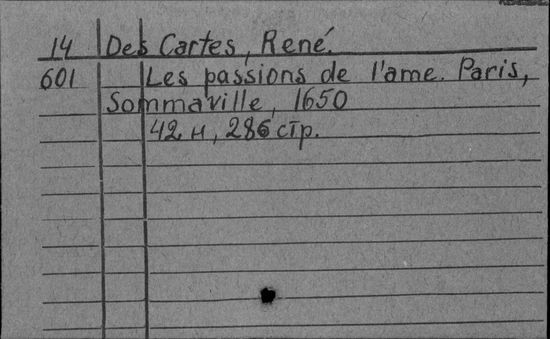 14 Des Cartes, René.
601 Les passions de l'ame. Paris,
Sommaville, 1650
42 н, 286 стр.